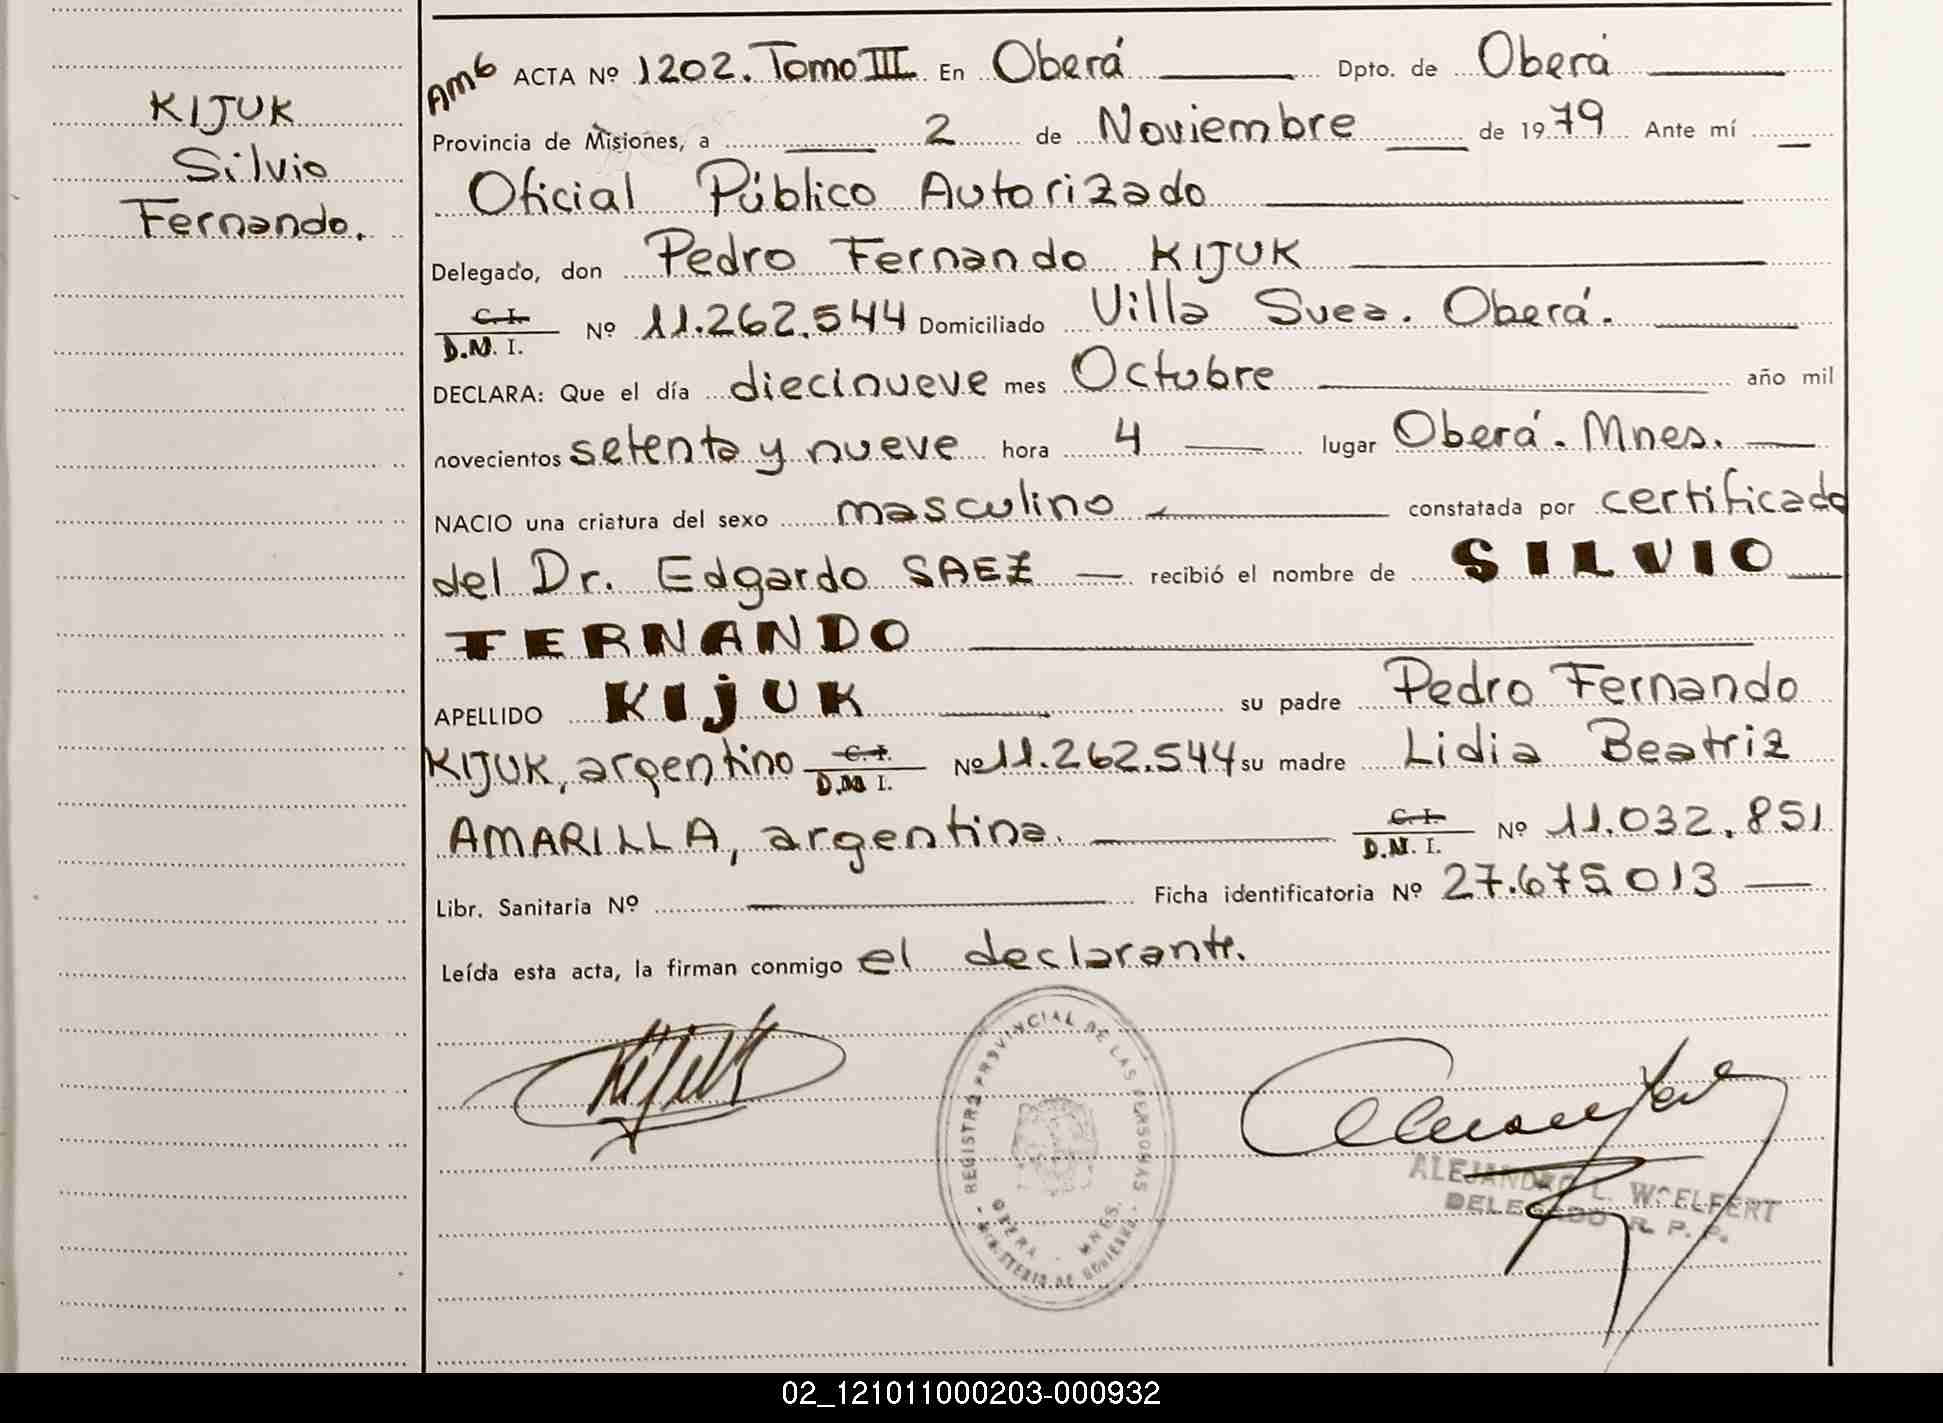 KIJUK
Silvio
Fernando.
Am6 ACTA Nº 1202. Tomo III En Oberá Dpto. de Oberá
Provincia de Misiones, a 2 de Noviembre de 1979 Ante mí
Oficial Público Autorizado
Delegado, don Pedro Fernando KIJUK
C. I. D.N.I. Nº 11.262.544 Domiciliado Villa Svea. Oberá.
DECLARA: Que el día diecinueve mes Octubre año mil
novecientos setenta y nueve hora 4 lugar Oberá. Mnes.
NACIO una criatura del sexo masculino constatada por certificado
del Dr. Edgardo SAEZ recibió el nombre de SILVIO
FERNANDO
APELLIDO KIJUK su padre Pedro Fernando
KIJUK, argentino C. I. D.N.I. Nº 11.262.544 su madre Lidia Beatriz
AMARILLA, argentina. C. I. D.N.I. Nº 11.032.851
Libr. Sanitaria Nº Ficha identificatoria Nº 27.675.013
Leída esta acta, la firman conmigo el declarante.
Kijuk
REGISTRO PROVINCIAL DE LAS PERSONAS
OBERA - MNES.
MINISTERIO DE GOBIERNO
ALEJANDRO L. WOELFERT
DELEGADO R. P. P.
02_121011000203-000932